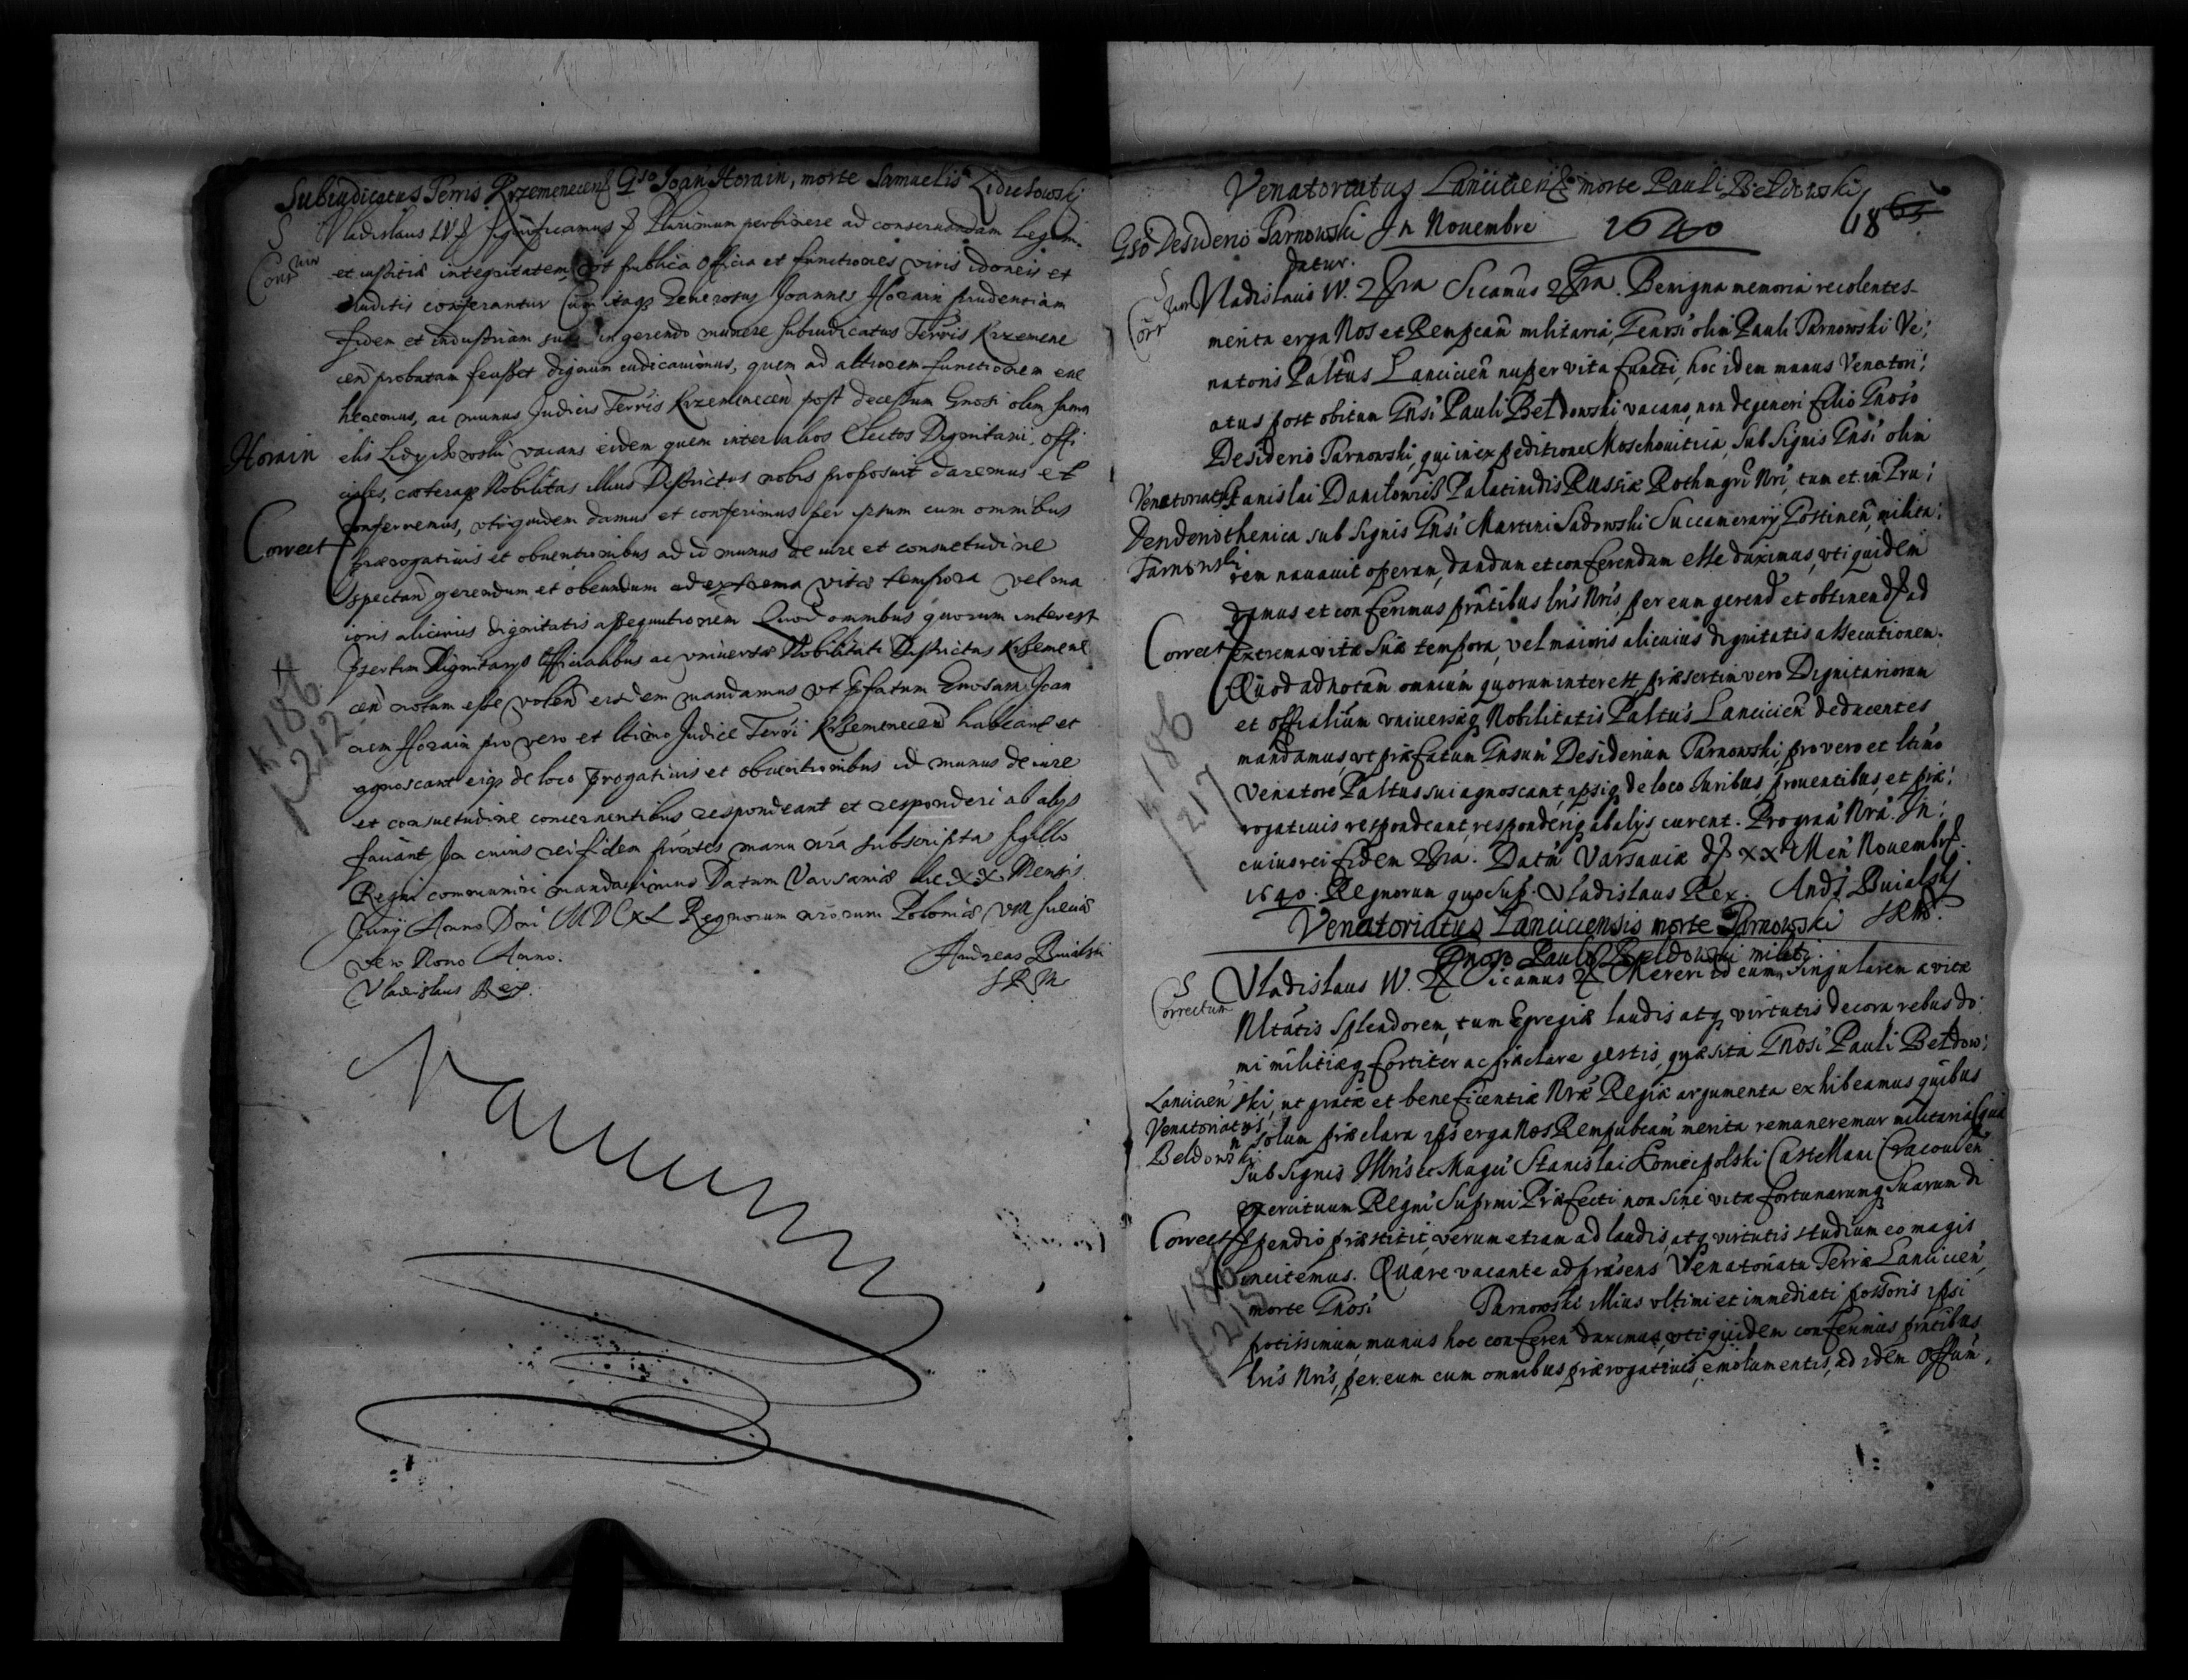 Subiudicatus Terris Krzemenecens Gso Joan Horain, morte Samuelis
S Vladislaus IV significamus Plurimum pertinere ad conseruandam Legum
Corrtum et iustitiæ integritatem, ut publica officia et functiones viris idoneis et
eruditis conferantur Cum itaqs Generosus Joannes Horain prudentiam
fidem et industriam suam in gerendo munere subiudicatus Terris Krzemene
cen probatam fecisset dignum iudicauimus, quem ad altiorem functionem eue
heremus, ac munus Judicis Terris Krzemenecen post decessum Gnosi olim Samu
Horain
elis vacans eidem quem inter alios Electos Dignitarii, offi
ciales, cæteraqs Nobilitas illius Districtus nobis proposuit daremus et
Correct
conferremus, vti quidem damus et conferimus per ipsum cum omnibus
prærogatiuis et obuentionibus ad id munus de iure et consuetudine
spectan gerendum et obeundum ad extrema vitæ tempora vel ma
ioris alicuius dignitatis assequutionem Quod omnibus quorum interest
psertim Dignitarys Officialibus ac vniuersæ Nobilitati Districtus Krzemene
cen notum esse volen eisdem mandamus vt pfatum Gnosum Joan
nem Horain pro vero et ltimo Judice Terri Krzemenecen habeant et
agnoscant eiqs de loco progatiuis et obuentionibus id munus de iure
et consuetudine concernentibus respondeant et responderi ab alys
faciant In cuius rei fidem pntes manu nra subscriptas sigillo
Regni communiri mandauimus Datum Varsauiæ die XX Mensis
Juny Anno Dni MDCXL Regnorum nrorum Poloniæ VIII Sueciæ
vero Nono Anno.
Vladislaus Rex.
Andreas Buialski
SRM
k 186
212
Venatoriatus Lanciciens morte Pauli Bełdowski
Gso Desiderio Parnowski In Nouembre 1640
datur.
S Corrtum Vladislaus IV. Sicamus. Benigna memoria recolentes
merita erga Nos et Rempcam militaria, Genrsi olim Pauli Parnowski Ve
natoris Paltus Lancicien nuper vita functi, hoc idem munus Venatori
atus post obitum Gnsi Pauli Bełdowski vacans, non degeneri filio Gnoso
Desiderio Parnowski, qui in expeditione Moschouitica, sub signis Gnsi olim
Venatoriatus
Stanislai Daniłowicz Palatinidis Russiæ Rothmgri Nri, tum et in Pru
thenica sub signis Gnsi Martini Sadowski Succamerary Gostinen, milita
Parnowski
rem nauauit operam, dandum et conferendum esse duximus, vti quidem
damus et conferimus pntibus lris Nris, per eum gerend et obtinend ad
Correct
extrema vitæ suæ tempora, vel maioris alicuius dignitatis assecutionem.
Quod ad notam omnium quorum interest præsertim vero Dignitariorum
et offialium vniuersæq Nobilitatis Paltus Lancicien deducentes
mandamus, vt præfatum Gnsum Desiderium Parnowski, pro vero et ltimo
Venatore Paltus sui agnoscant, ipsiq de loco Iuribus, prouentibus, et præ
rogatiuis respondeant, responderiq ab alys curent. Pro graa Nra. In
cuius rei fidem. Datm Varsauiæ d. XX Men Nouembr.
1640. Regnorum quo sup. Vladislaus Rex. And. Buialski
SRM.
k 186
217
Venatoriatus Lanciciensis morte Parnowski
Gnoso Paulo Bełdowski militi.
S Correctum
Vladislaus IV. Sicamus Mereri id cum singularem auitæ
Nltatis splendorem, tum egregiæ laudis atq virtutis decora rebus do
mi militiæq fortiter ac præclare gestis, quæsita Gnosi Pauli Bełdow
Lancicien
ski, ut gratæ et beneficentiæ Nræ Regiæ argumenta exhibeamus quibus
Venatoriatus
n solum præclara ips erga Nos Rempubcam merita remuneremur militaria quæ
Beldowski
sub signis Illris et Magci Stanislai Koniecpolski Castellani Cracouien
exercituum Regni Supmi Præfecti non sine vitæ fortunarumq suarum di
Correct
spendio præstitit, verum etiam ad laudis, atq virtutis studium eo magis
incitemus. Quare vacante ad præsens Venatoriatu Terræ Lancicien,
morte Gnosi Parnowski illius vltimi et immediati possoris ipsi
potissimum, munus hoc conferen duximus, vti quidem conferimus pntibus
lris Nris, per eum cum omnibus prærogatiuis, emolumentis, ad idem offum